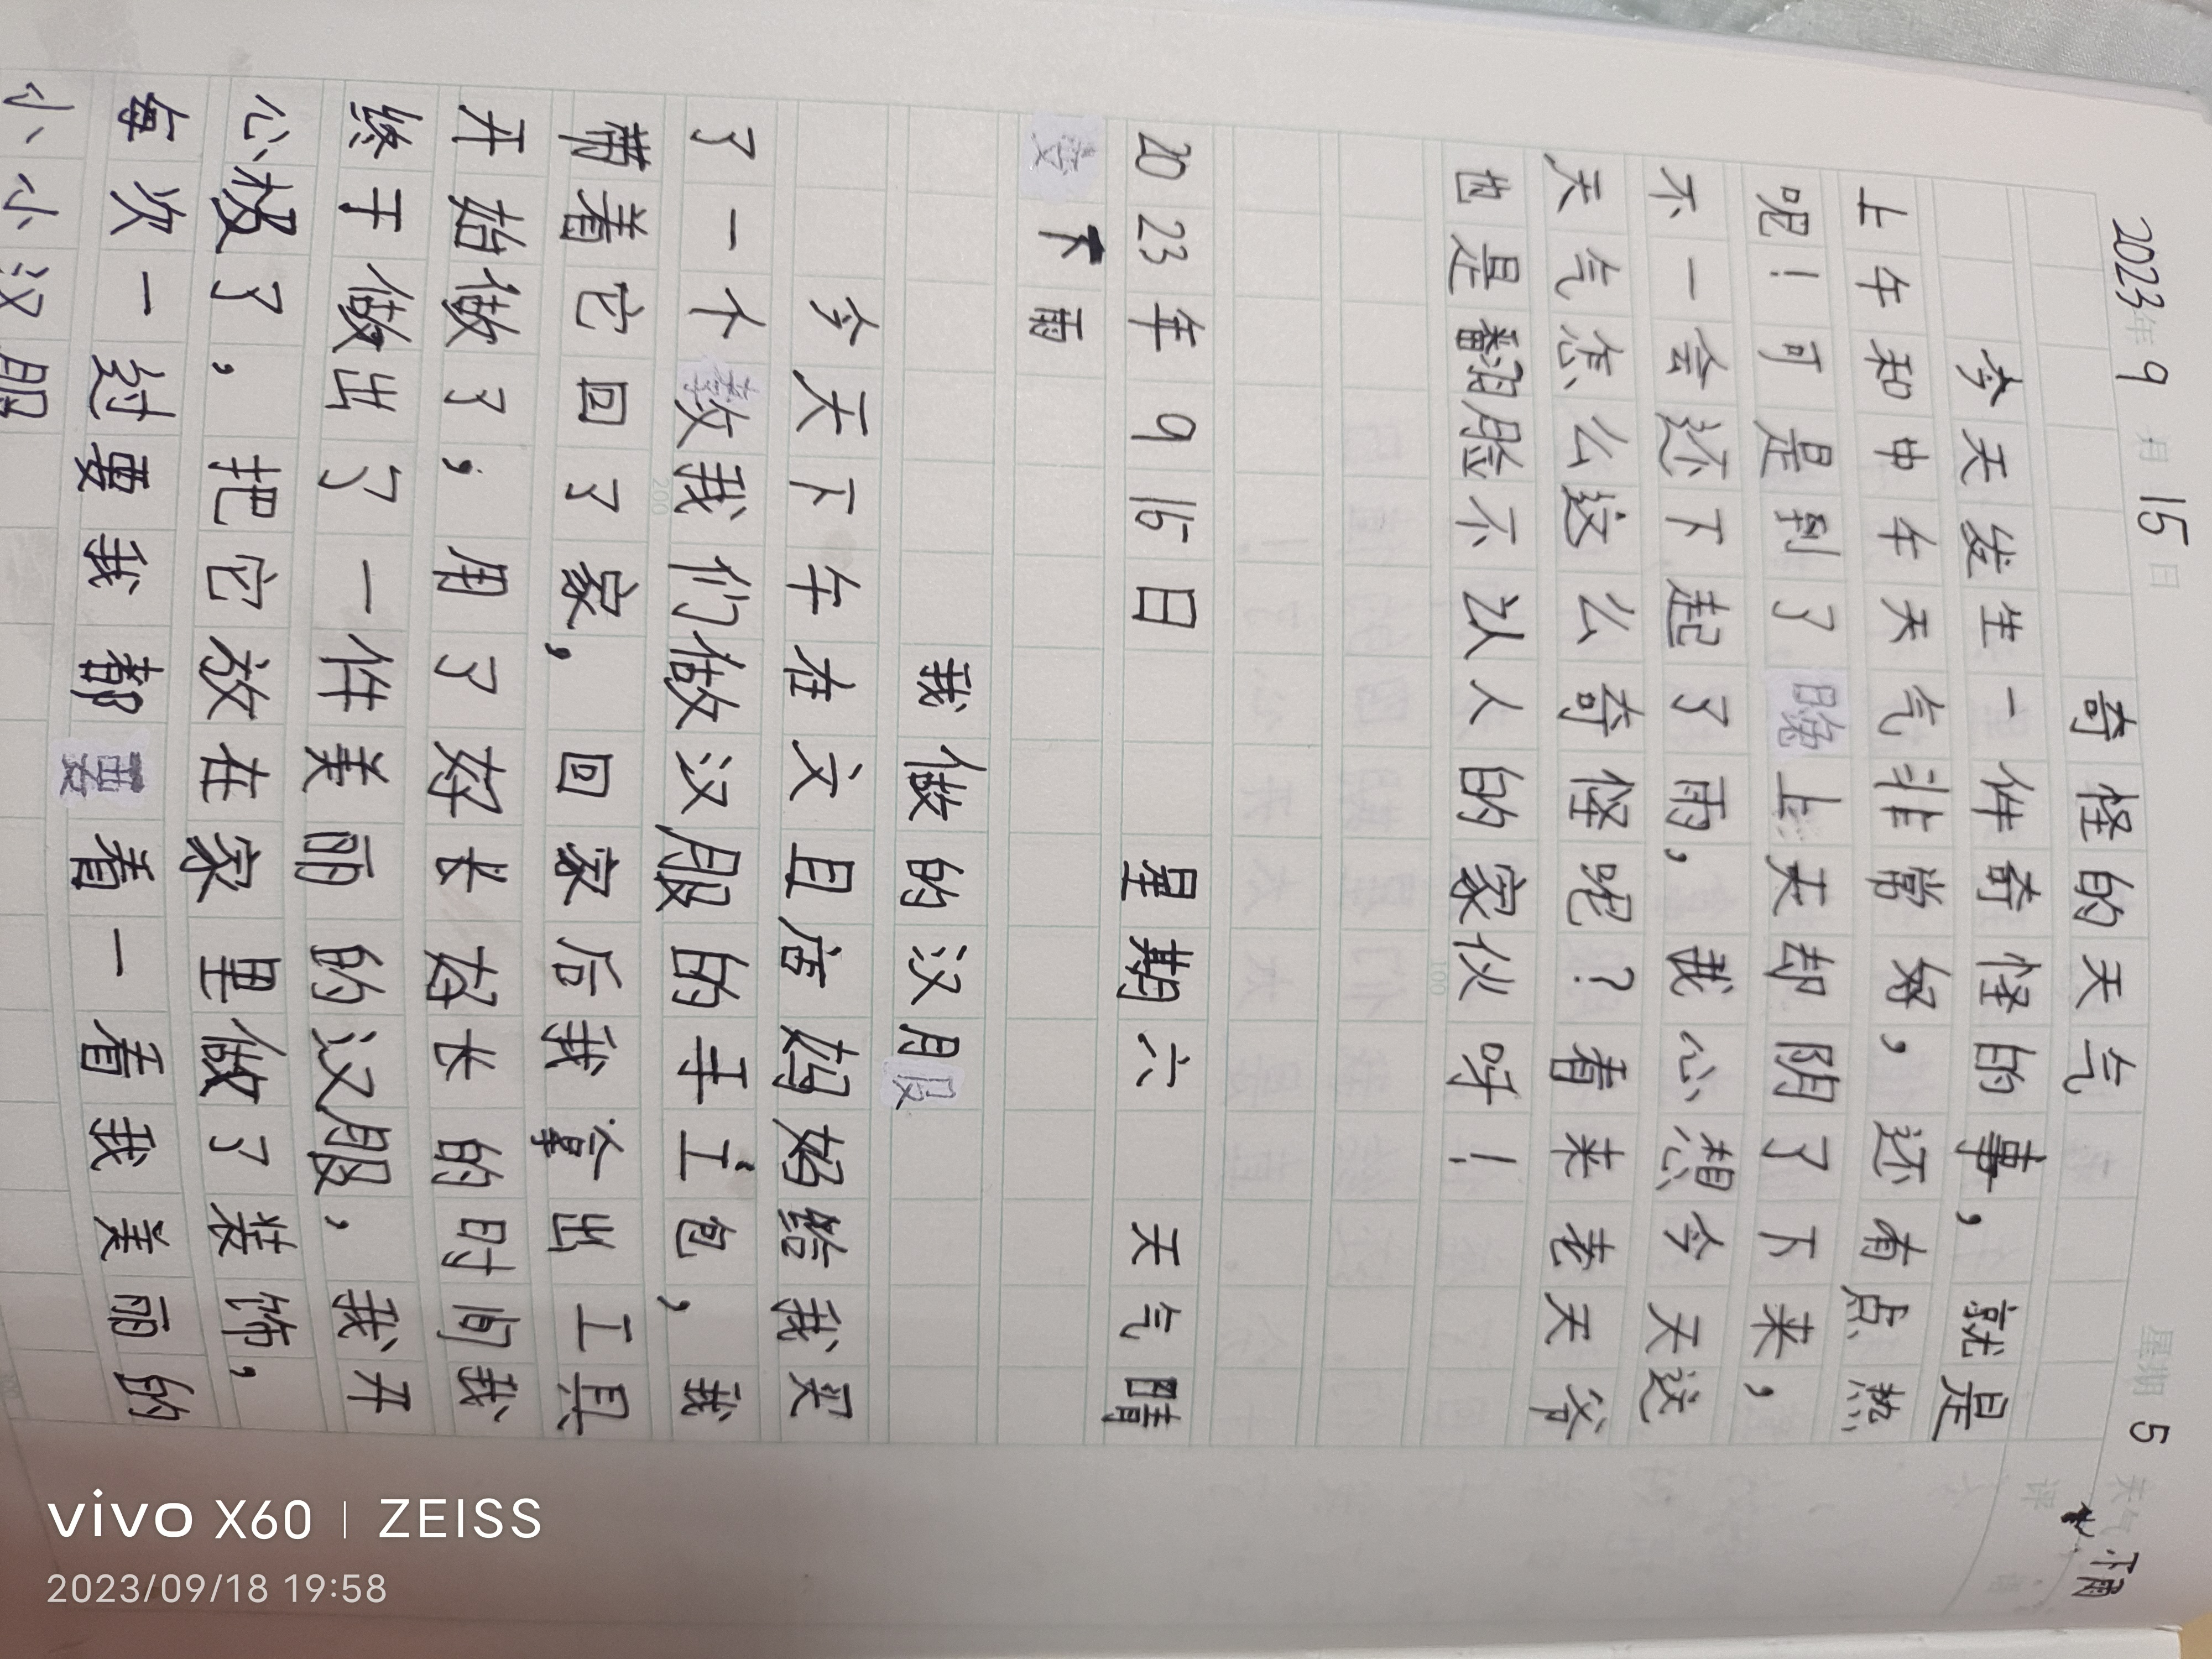 2023年9月15日 星期5 天气 下雨
奇怪的天气
今天发生一件奇怪的事，就是
上午和中午天气非常好，还有点热
呢！可是到了晚上天却阴了下来，
不一会还下起了雨，我心想今天这
天气怎么这么奇怪呢？看来老天爷
也是翻脸不认人的家伙呀！
2023年9月16日 星期六 天气晴
变下雨
我做的汉服
今天下午在文具店妈妈给我买
了一个教我们做汉服的手工包，我
带着它回了家，回家后我拿出工具
开始做了，用了好长好长的时间我
终于做出了一件美丽的汉服，我开
心极了，把它放在家里做了装饰，
每次一到要我都要看一看我美丽的
小小汉服
vivo X60 | ZEISS
2023/09/18 19:58